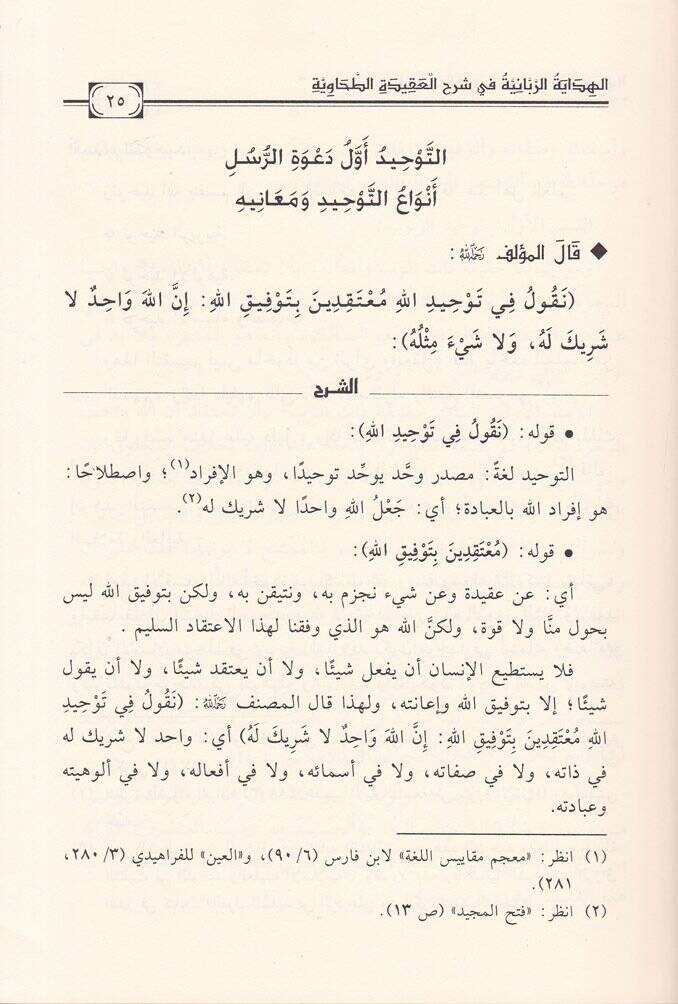 الهِدَايَةُ الرَّبَّانِيَّةُ في شَرح الْعَقِيدَةِ الطَّحَاوِيَّةِ
٢٥
التَّوْحِيدُ أَوَّلُ دَعْوَةِ الرُّسُلِ
أَنْوَاعُ التَّوْحِيدِ وَمَعَانِيهِ
◆ قَالَ المؤلف رَحِمَهُ اللهُ :
(نَقُولُ فِي تَوْحِيدِ اللهِ مُعْتَقِدِينَ بِتَوْفِيقِ اللهِ: إِنَّ اللهَ وَاحِدٌ لا
شَرِيكَ لَهُ، وَلا شَيْءَ مِثْلُهُ):
الشرح
• قوله: (نَقُولُ فِي تَوْحِيدِ اللهِ):
التوحيد لغةً: مصدر وحَّد يوحِّد توحيدًا، وهو الإفراد(١)؛ واصطلاحًا:
هو إفراد الله بالعبادة؛ أي: جَعْلُ اللهِ واحدًا لا شريك له(٢).
• قوله: (مُعْتَقِدِينَ بِتَوْفِيقِ اللهِ):
أي: عن عقيدة وعن شيء نجزم به، ونتيقن به، ولكن بتوفيق الله ليس
بحول منَّا ولا قوة، ولكنَّ الله هو الذي وفقنا لهذا الاعتقاد السليم .
فلا يستطيع الإنسان أن يفعل شيئًا، ولا أن يعتقد شيئًا، ولا أن يقول
شيئًا؛ إلا بتوفيق الله وإعانته، ولهذا قال المصنف رَحِمَهُ اللهُ: (نَقُولُ فِي تَوْحِيدِ
اللهِ مُعْتَقِدِينَ بِتَوْفِيقِ اللهِ: إِنَّ اللهَ وَاحِدٌ لا شَرِيكَ لَهُ) أي: واحد لا شريك له
في ذاته، ولا في صفاته، ولا في أسمائه، ولا في أفعاله، ولا في ألوهيته
وعبادته.
(١) انظر: «معجم مقاييس اللغة» لابن فارس (٩٠/٦)، و«العين» للفراهيدي (٢٨٠/٣،
٢٨١).
(٢) انظر: «فتح المجيد» (ص ١٣).